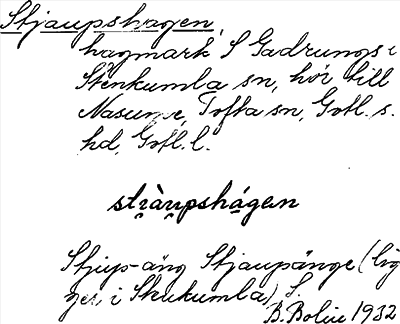 Stjaupshagen,
hagmark S Gadrungs i
Stenkumla sn, hör till
Nasume, Tofta sn, Gotl. s.
hd, Gotl. l.
stràupshágen
Stjup-äng Stjaupänge (lig
ger i Stenkumla) S.
B. Bolin 1932